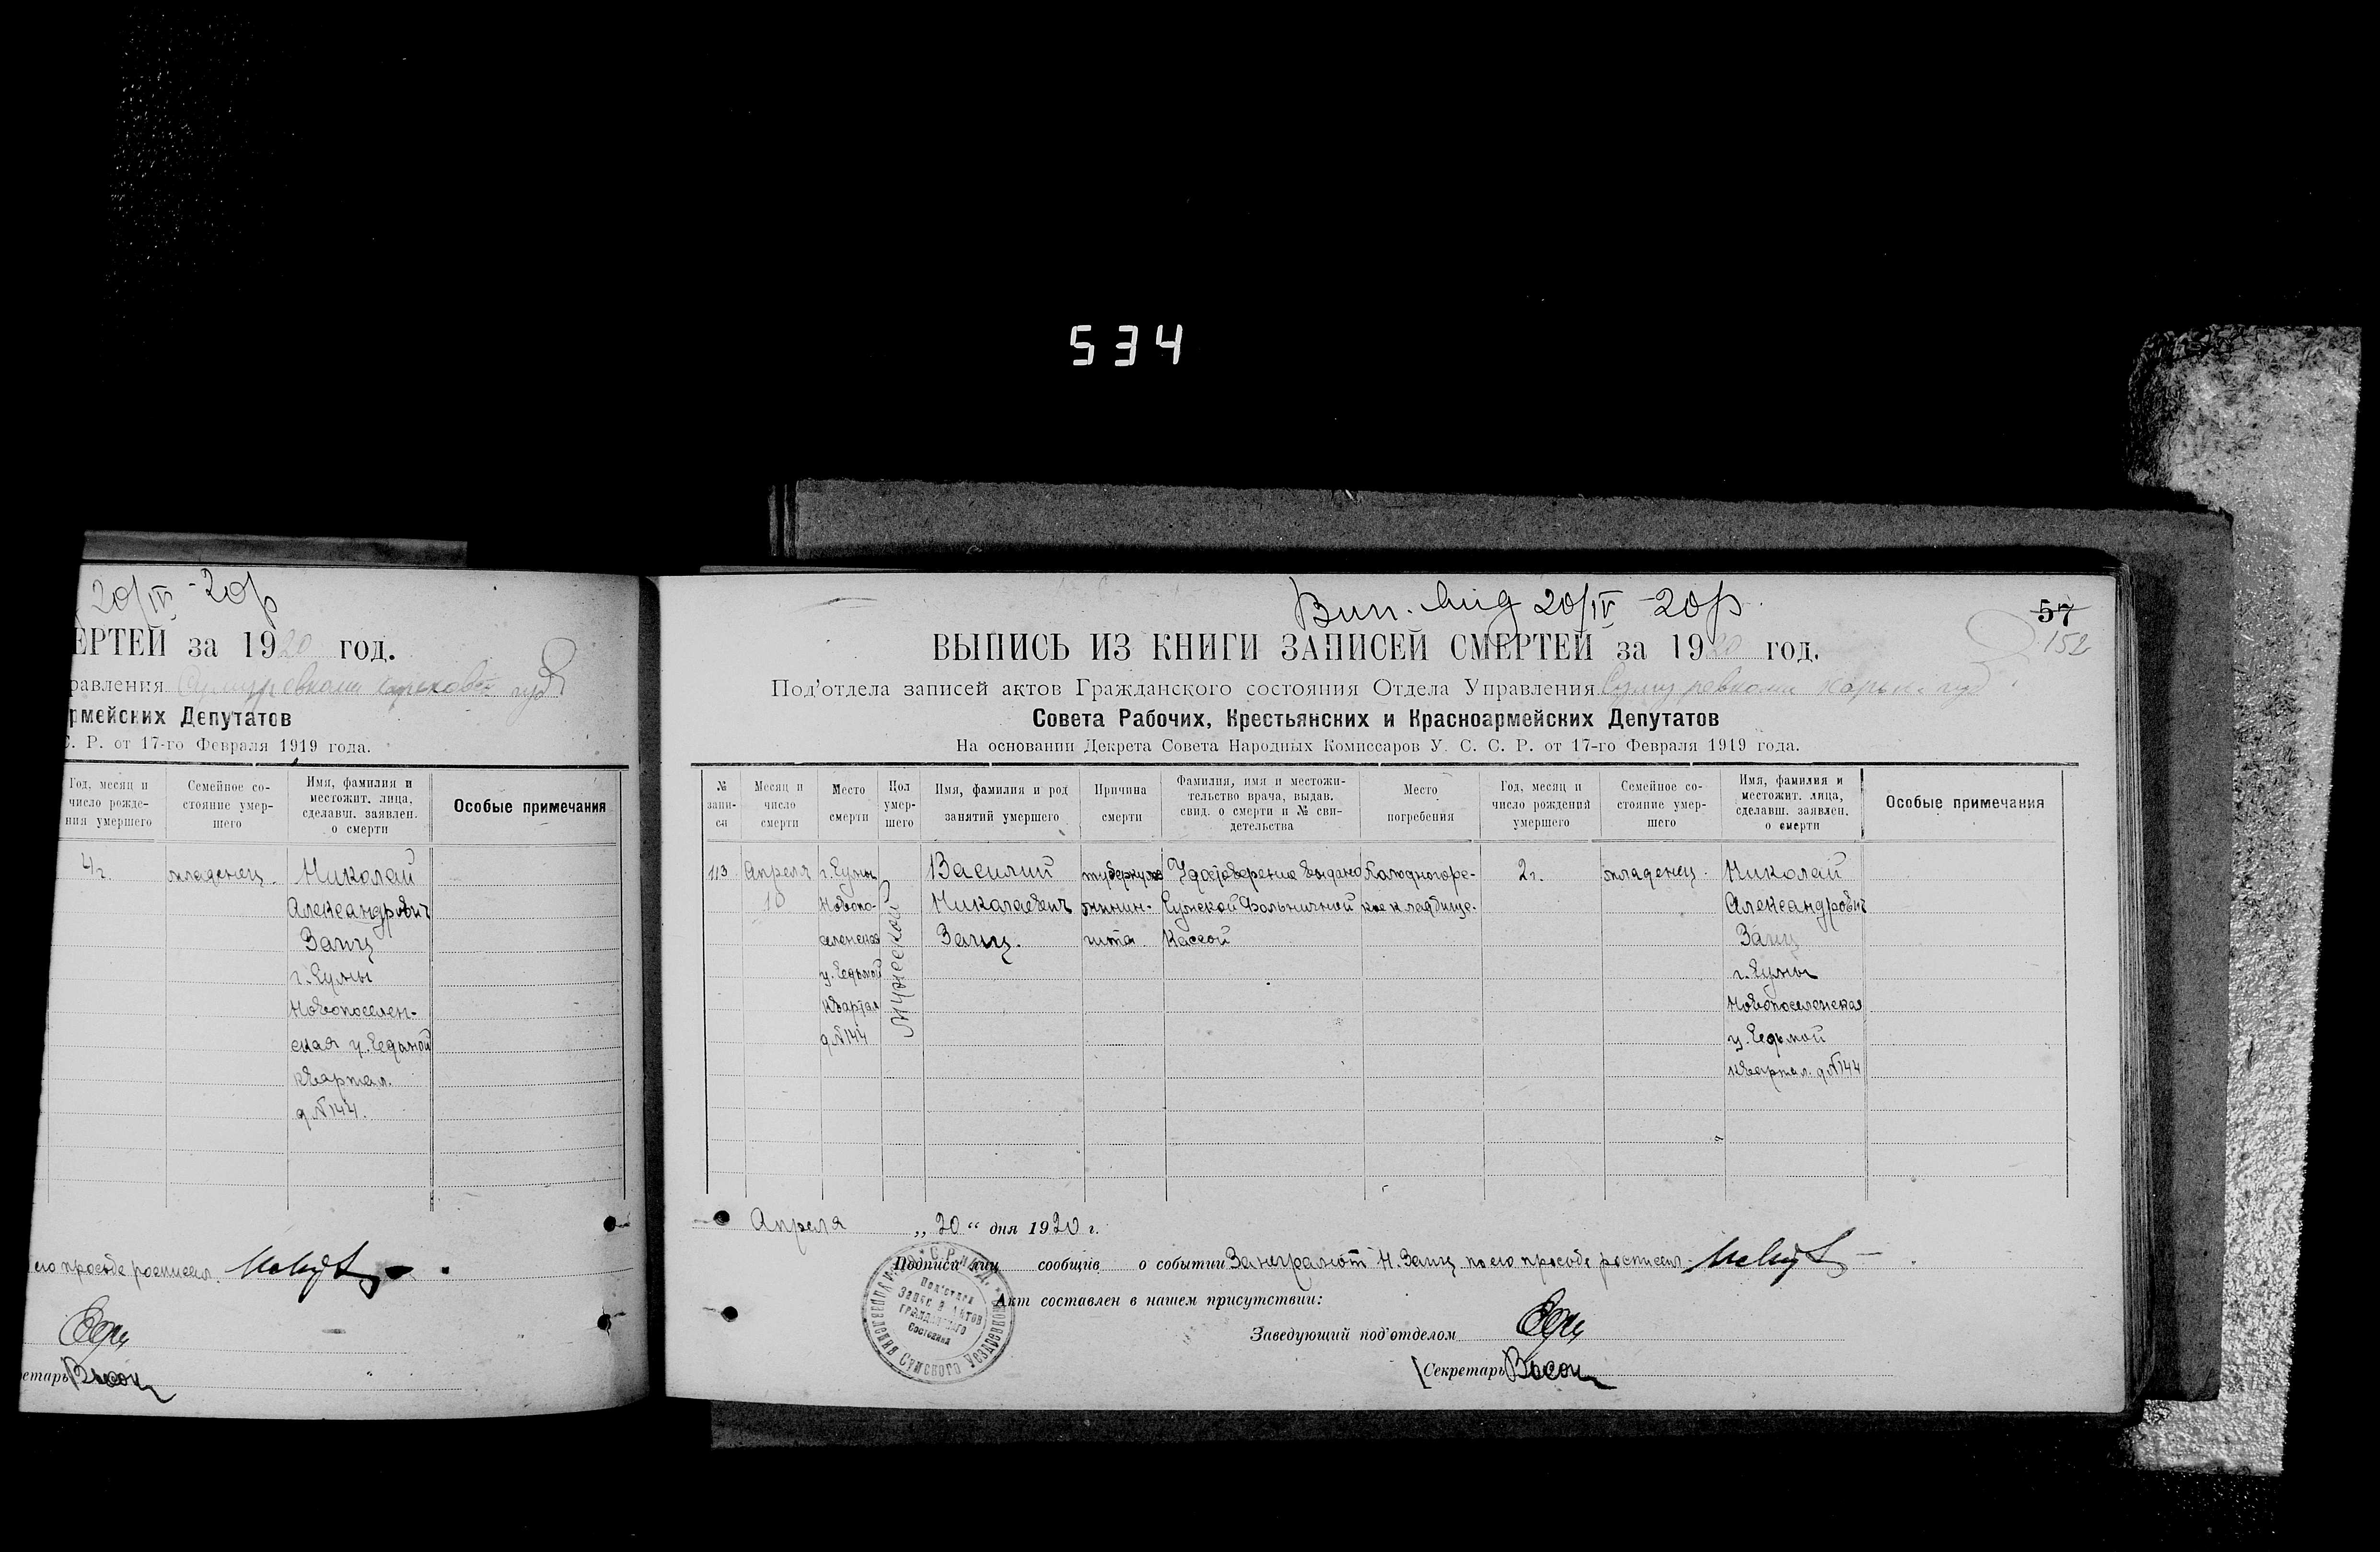 534
20/IV -20р
ЕРТЕЙ за 1920 год.
равления
рмейских Депутатов
С. Р. от 17-го Февраля 1919 года.
Год, месяц и число рожде- ния умершего
Семейное со- стояние умер- шего
Имя, фамилия и местожит. лица, сделавш. заявлен. о смерти
Особые примечания
4 г. младенец. Николай
Александрович
Заиц
г. Сумы
Новопоселен-
ская у. Седьмой
квартал.
д. №144.
его просьбе росписал.
етарь
Вип. 20/IV -20р.
57
152
ВЫПИСЬ ИЗ КНИГИ ЗАПИСЕЙ СМЕРТЕЙ за 1920 год.
Под'отдела записей актов Гражданского состояния Отдела Управления
Совета Рабочих, Крестьянских и Красноармейских Депутатов
На основании Декрета Совета Народных Комиссаров У. С. С. Р. от 17-го Февраля 1919 года.
№ запи- си
Месяц и число смерти
Место смерти
Пол умер- шего
Имя, фамилия и род занятий умершего
Причина смерти
Фамилия, имя и местожи- тельство врача, выдав. свид. о смерти и № сви- детельства
Место погребения
Год, месяц и число рождения умершего
Семейное со- стояние умер- шего
Имя, фамилия и местожит. лица, сделавш. заявлен. о смерти
Особые примечания
113 Апреля г. Сумы Василий туберкулез Удостоверение выдано Холодногорс- 2 г. младенец. Николай
10 Новопо- Николаевич Сумской Больничной кое кладбище. Александрович
селенская Заиц. Кассой Заиц
у. Седьмой г. Сумы
квартал Новопоселенская
д №144 у. Седьмой
Мужеской квартал. д №144
Апреля „20“ дня 1920 г.
Подписи лиц сообщив. о событии За неграмот Н. Заиц по его просьбе росписал.
Акт составлен в нашем присутствии:
Заведующий под'отделом
Секретарь
Под'отдел
Запис. Актов
Гражданского
Состояния